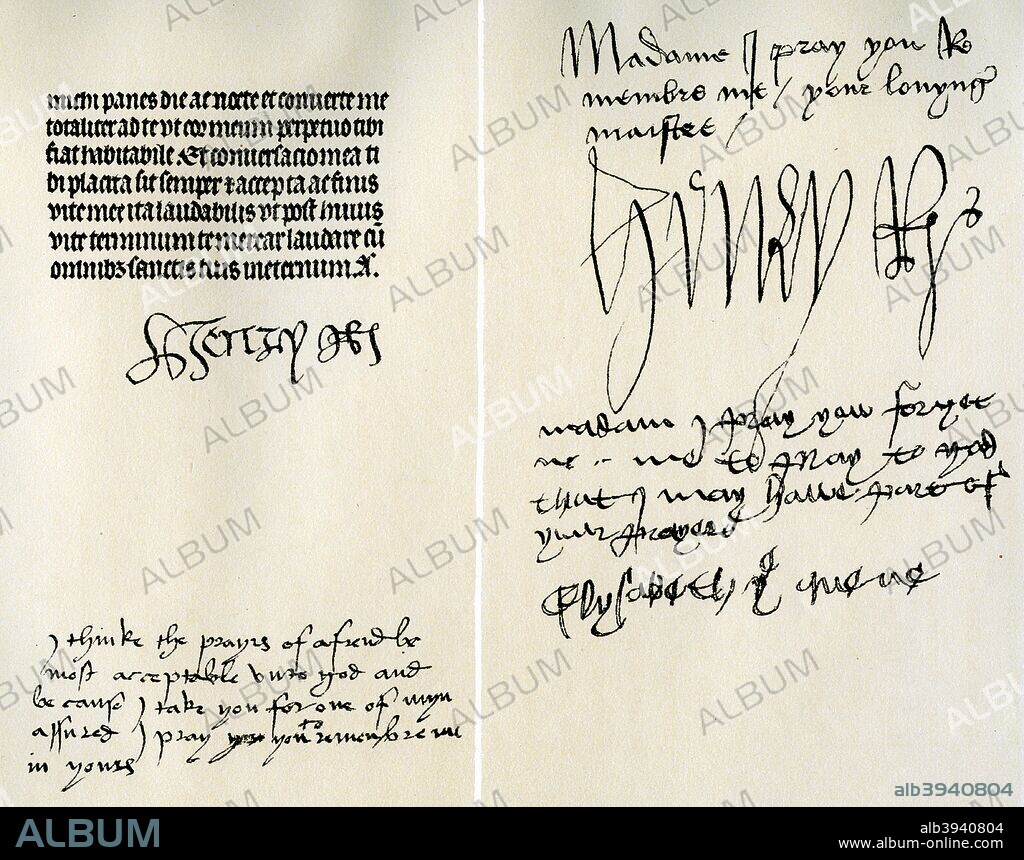 mem panes die ac nocte et conuerte me
totaliter ad te vt cor meum perpetuo tibi
fiat habitabile. Et conuersacio mea ti
bi placita sit semper & accepta ac finis
vite mee ita laudabilis vt post huius
vite terminum te merear laudare cū
omnibȝ sanctis tuis ineternum. A.
Henry
I thinke the prayrs of a frend be
most acceptable vnto god and
be cause I take you for one of myn
assured I pray you to remembre me
in yours
Madame I pray you Re
membre me / your louyng
maistre /
Henry R
madam I pray you forget
me to pray to god
that I may haue part of
your prayers
Elysabeth ye quene
ALBUM
alb3940804
ALBUM
alb3940804
www.album-online.com